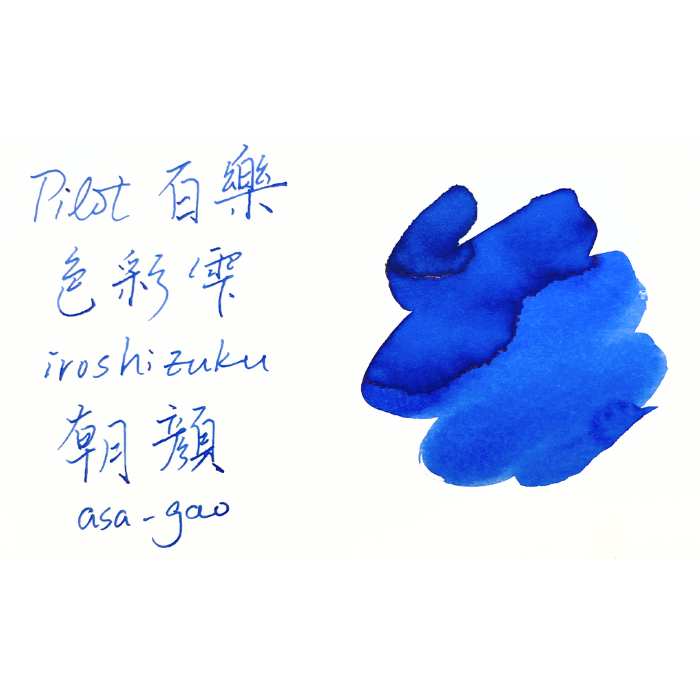 Pilot 百樂
色彩雫
iroshizuku
朝顔
asa-gao